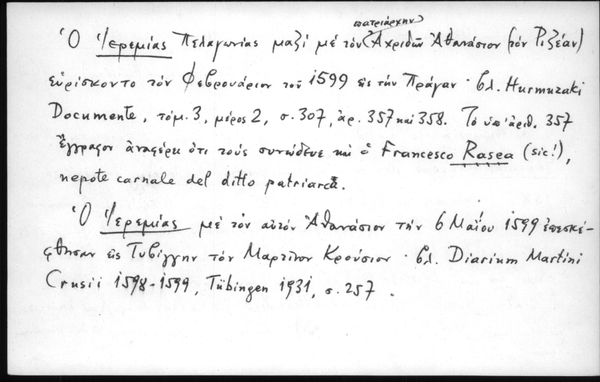 πατριάρχην
Ὁ Ἱερεμίας Πελαγωνίας μαζὶ μὲ τὸν Ἀχριδῶν Ἀθανάσιον (τὸν Ριζέαν)
εὑρίσκοντο τὸν Φεβρουάριον τοῦ 1599 εἰς τὴν Πράγαν · βλ. Hurmuzaki
Documente, τόμ. 3, μέρος 2, σ. 307, ἀρ. 357 καὶ 358. Τὸ ὑπ' ἀριθ. 357
ἔγγραφον ἀναφέρει ὅτι τοὺς συνώδευε καὶ ὁ Francesco Rasea (sic!),
nepote carnale del ditto patriarca.
Ὁ Ἱερεμίας μὲ τὸν αὐτὸν Ἀθανάσιον τὴν 6 Μαΐου 1599 ἐπεσκέ-
φθησαν εἰς Τυβίγγην τὸν Μαρτῖνον Κρούσιον · βλ. Diarium Martini
Crusii 1598-1599, Tübingen 1931, σ. 257.